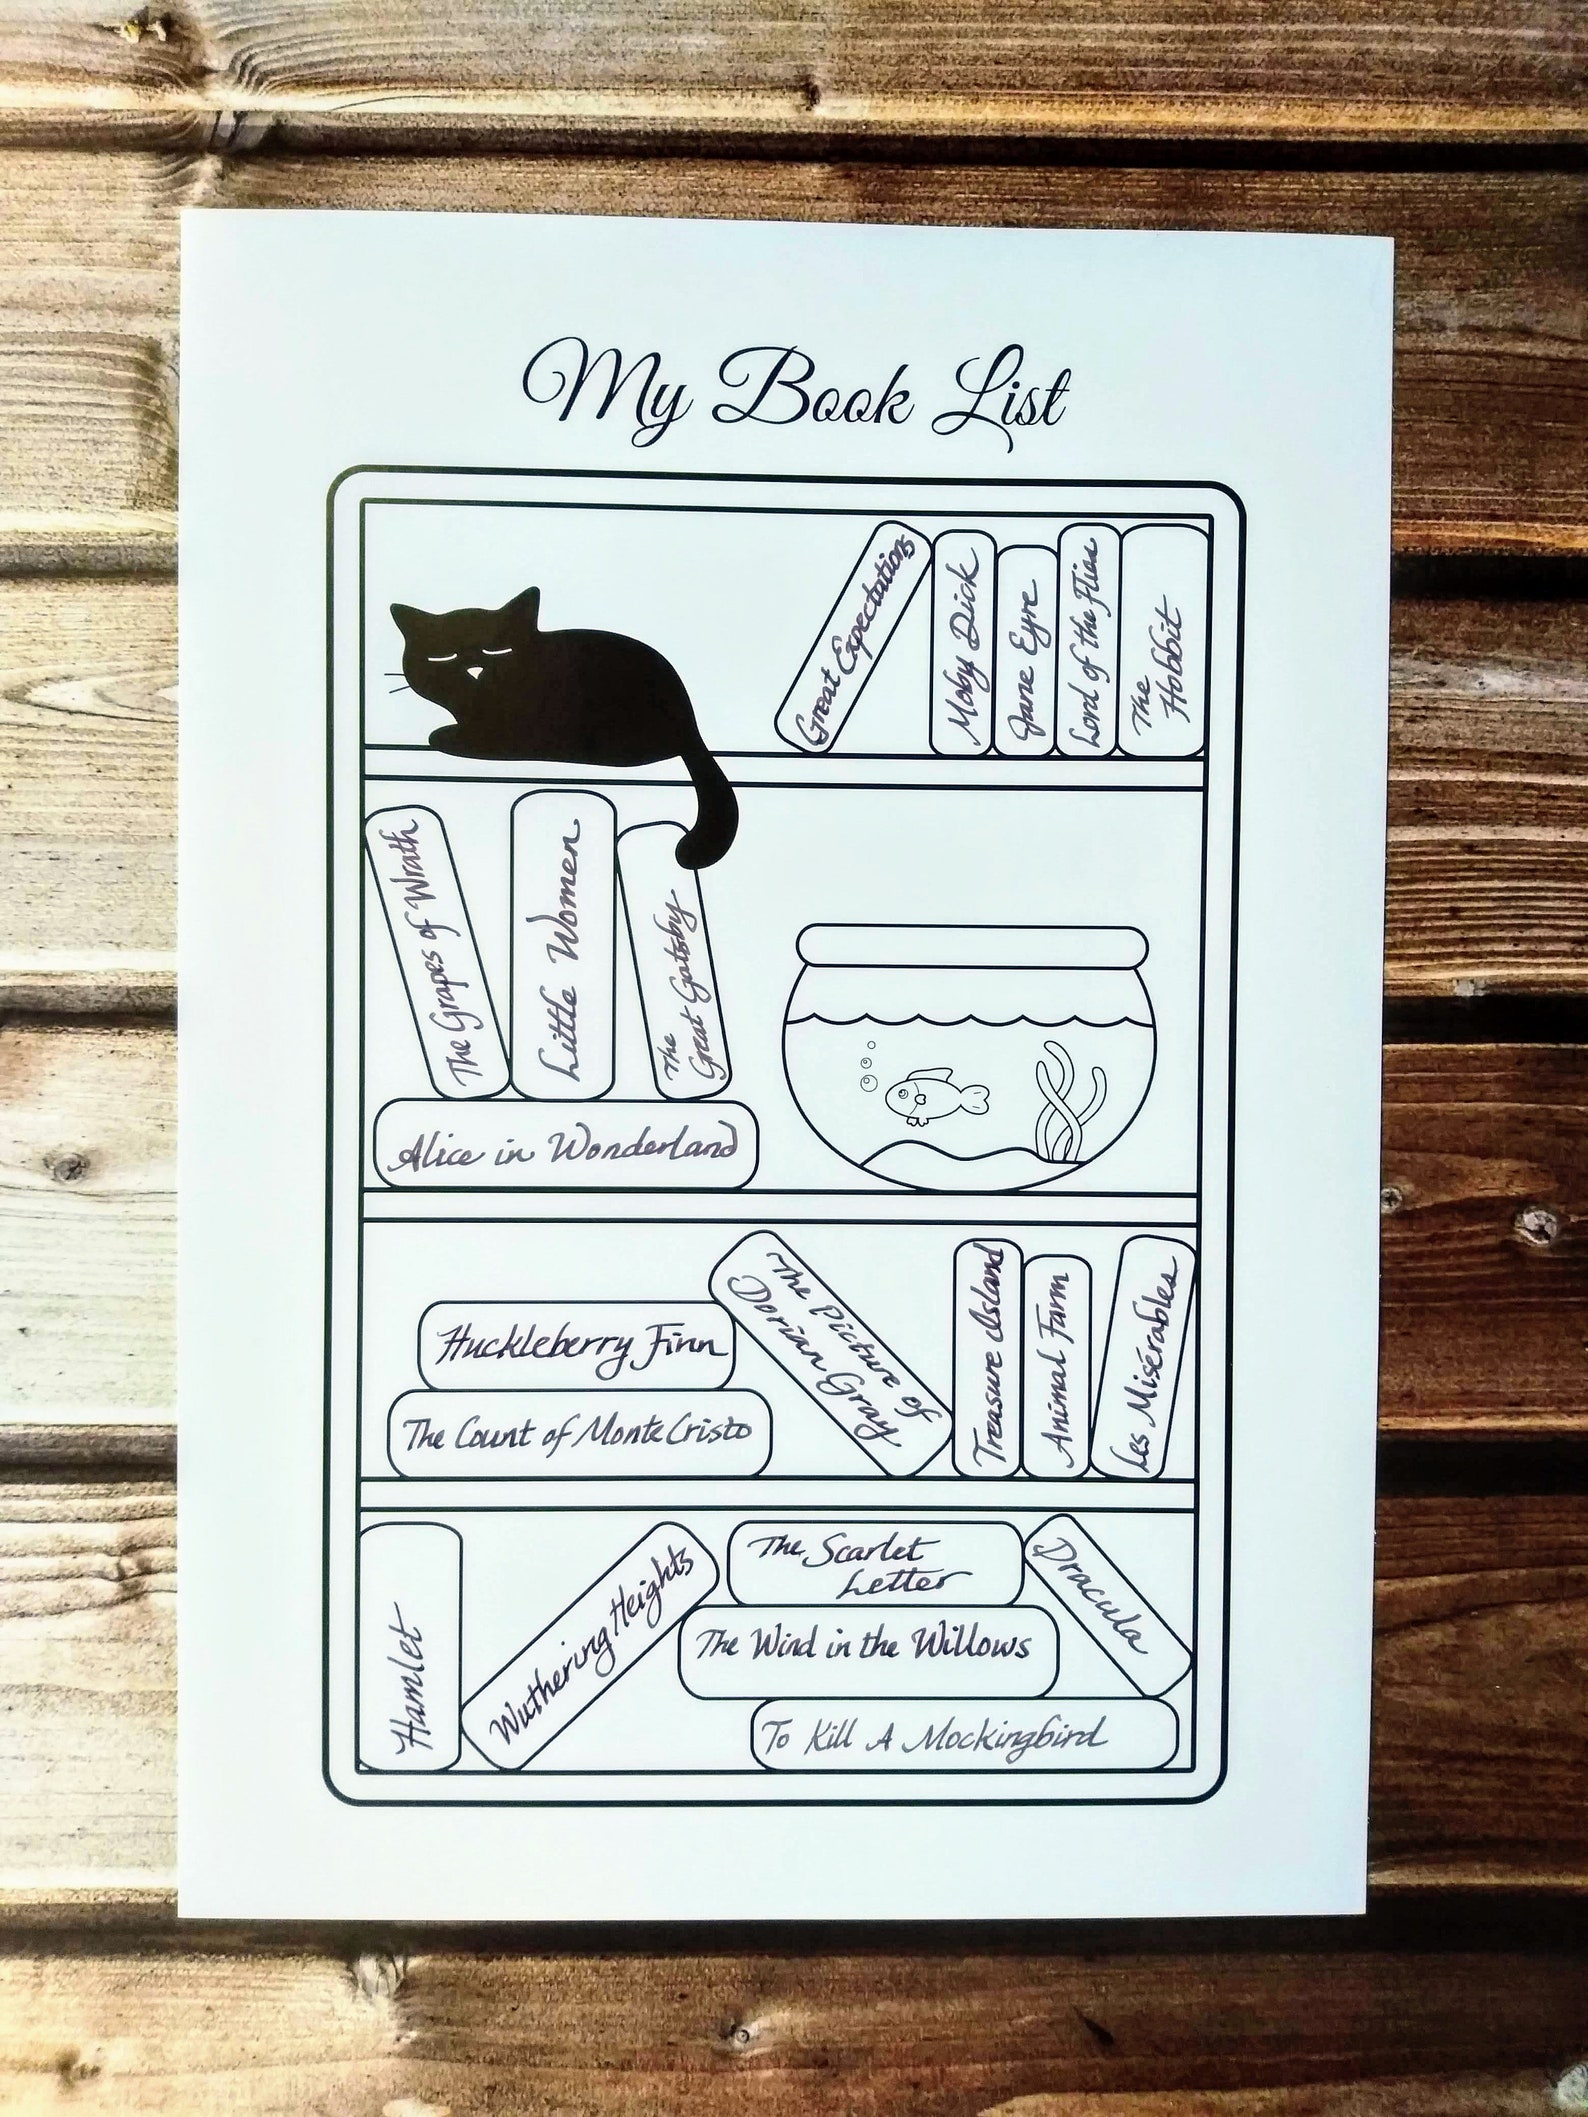 My Book List
Great Expectations
Moby Dick
Jane Eyre
Lord of the Flies
The
Hobbit
The Grapes of Wrath
Little Women
The
Great Gatsby
Alice in Wonderland
Huckleberry Finn
The Count of Monte Cristo
The Picture of
Dorian Gray
Treasure Island
Animal Farm
Les Misérables
Hamlet
Wuthering Heights
The Scarlet
Letter
The Wind in the Willows
To Kill A Mockingbird
Dracula